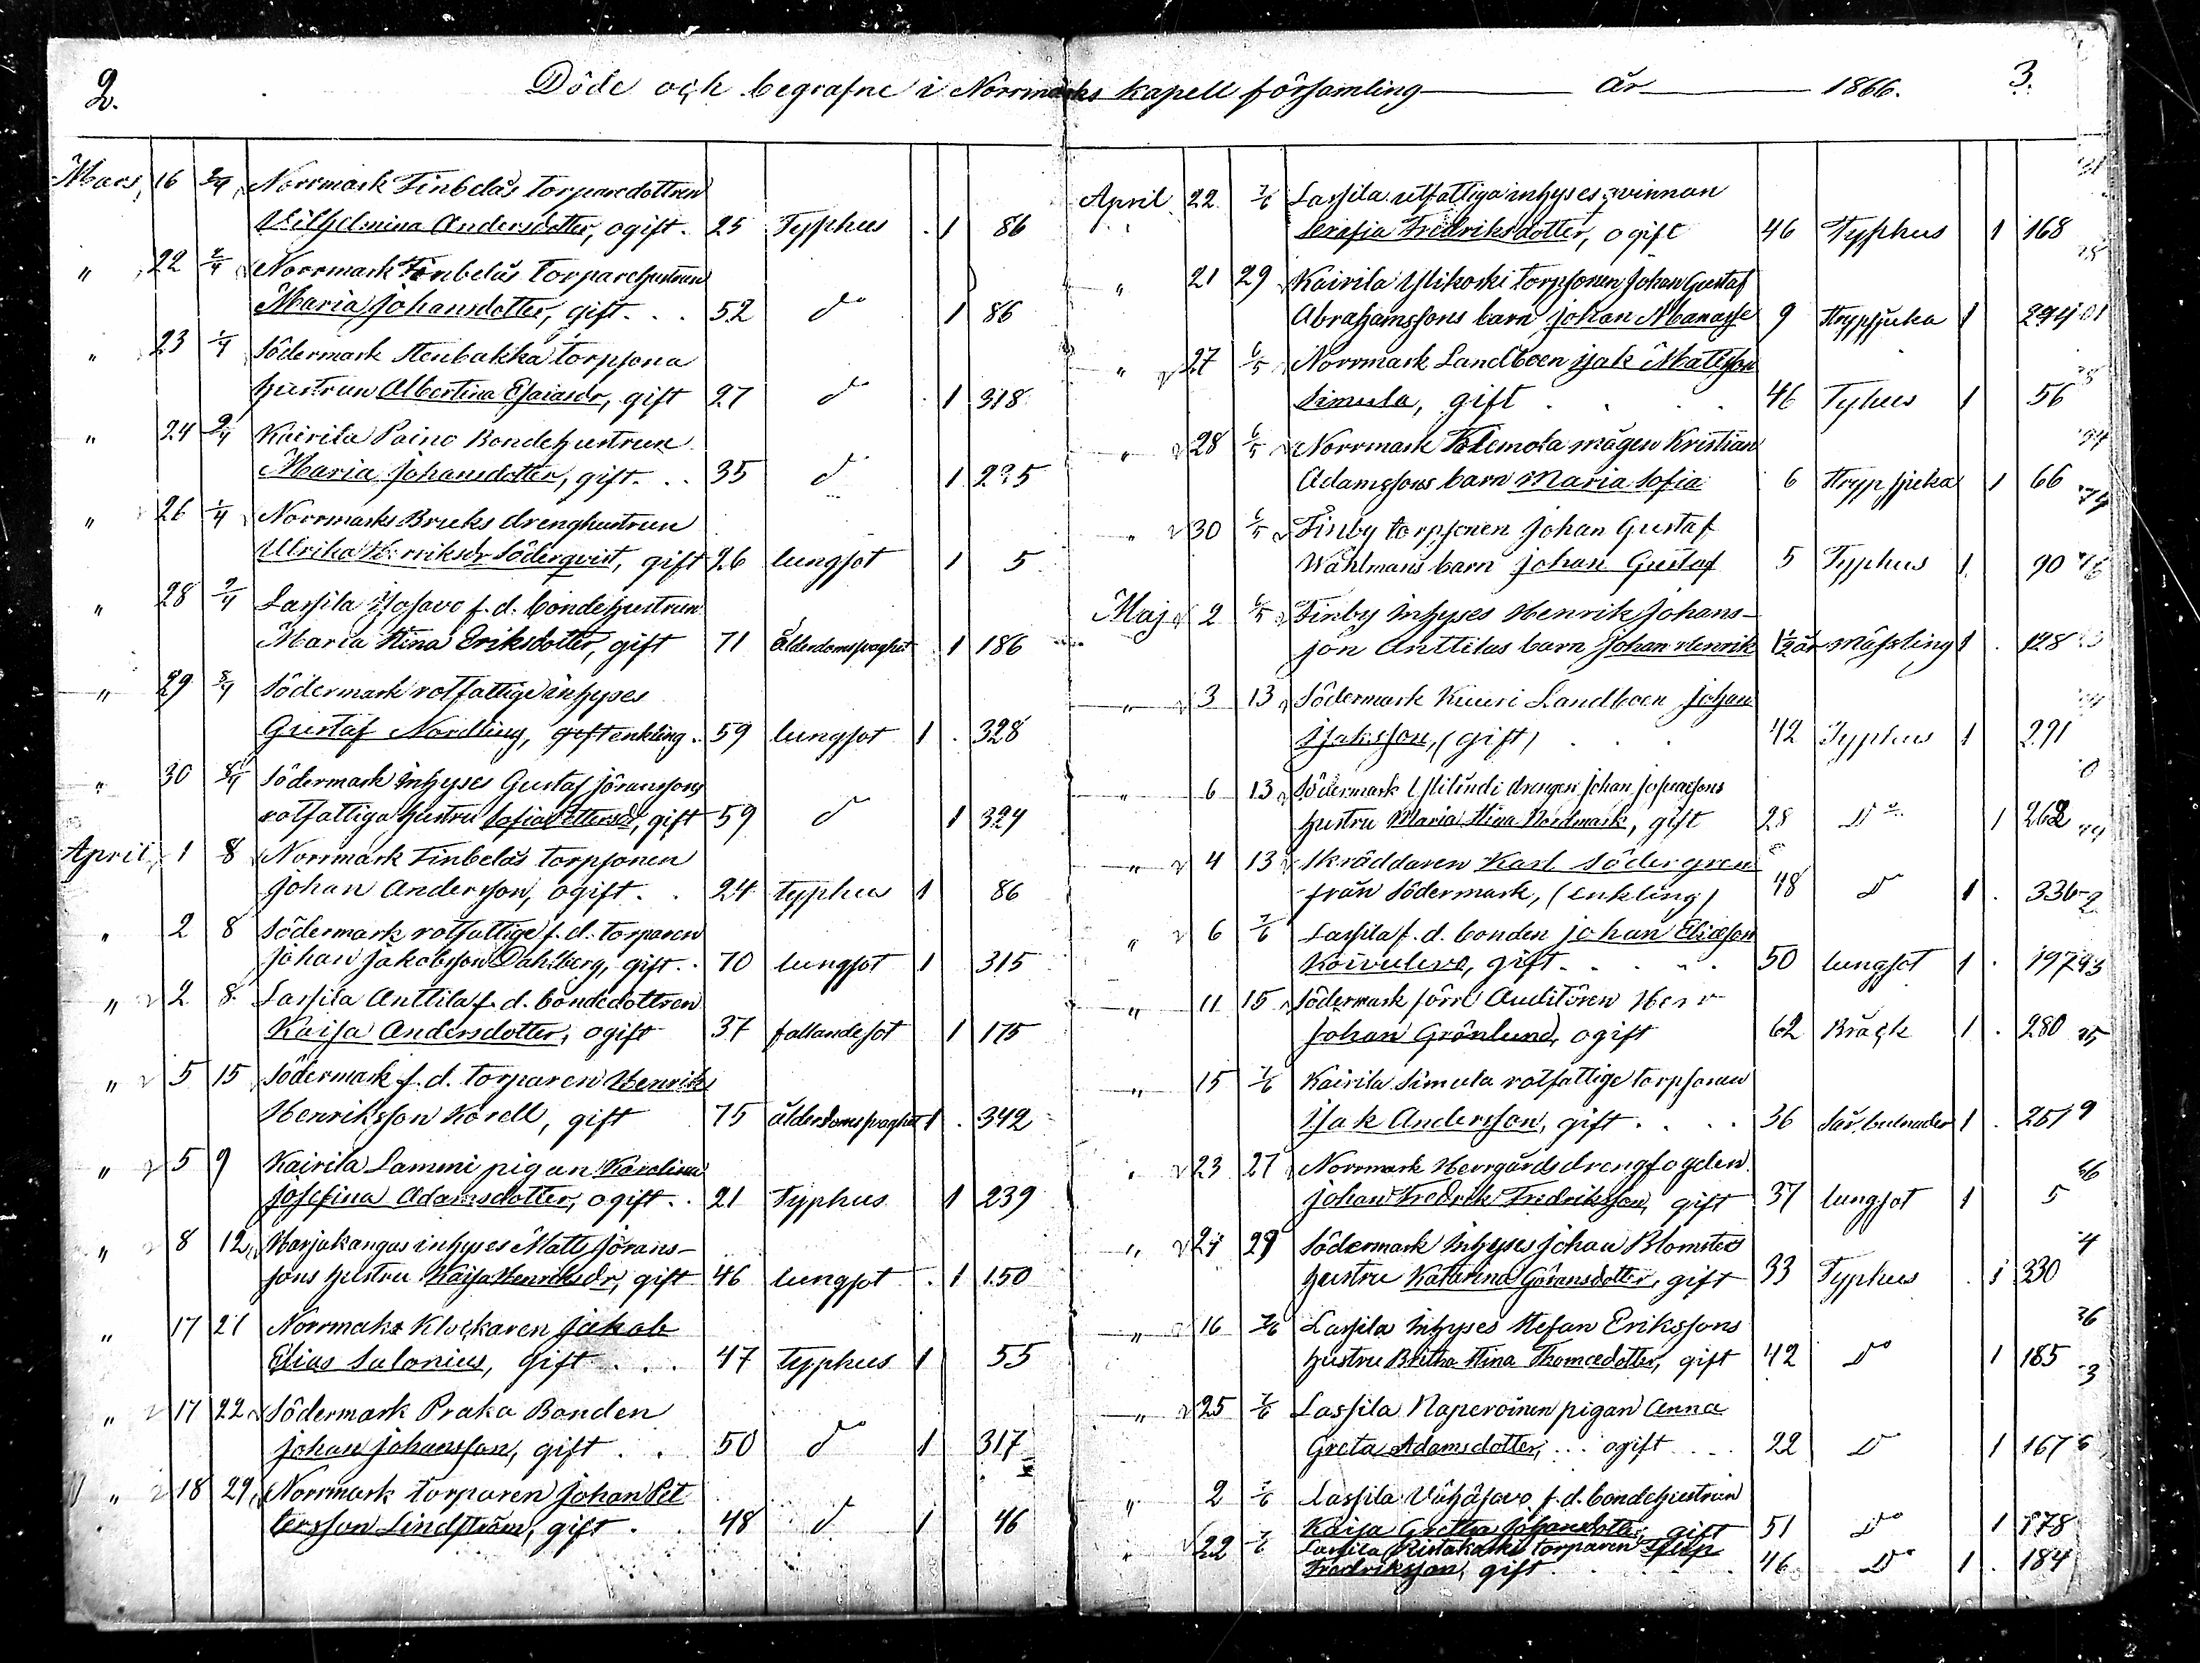 2.
Döde och begrafne i Norrmarks kapell församling år 1866.
3.
Mars 16 2/4 Norrmark Finbeläs torparedottren
Vilhelmina Andersdotter, ogift. 25 Typhus 1 86
" 22 2/4 Norrmark Finbeläs torparehustrun
Maria Johansdotter, gift. 52 do 1 86
" 23 1/4 Södermark Stenbakka torpsona
hustrun Albertina Esaiasdr, gift 27 do 1 318
" 24 2/4 Kairila Paino Bondehustrun
Maria Johansdotter, gift. 35 do 1 235
" 26 1/4 Norrmarks Bruks drenghustrun
Ulrika Henriksdr Söderqvist, gift 26 lungsot 1 5
" 28 2/4 Lassila Isosavo f.d. bondehustrun
Maria Stina Eriksdotter, gift 71 ålderdomsvaghet 1 186
" 29 8/4 Södermark rotfattige inhyses
Gustaf Nordling, gift enkling. 59 lungsot 1 328
" 30 8/4 Södermark inhyses Gustaf Jöranssons
rotfattiga hustru Sofia Pettersdr, gift 59 do 1 324
April 1 8 Norrmark Finbeläs torpsonen
Johan Andersson, ogift. 24 typhus 1 86
" 2 8 Södermark rotfattige f.d. torparen
Johan Jakobsson Dahlberg, gift. 70 lungsot 1 315
" 2 8 Lassila Anttila f.d. bondedottren
Kaisa Andersdotter, ogift 37 fallandesot 1 175
" 5 15 Södermark f.d. torparen Henrik
Henriksson Korell, gift 75 ålderdomsvaghet 1 342
" 5 9 Kairila Lammi pigan Karolina
Josefina Adamsdotter, ogift. 21 Typhus 1 239
" 8 12 Harjakangas inhyses Matts Jörans-
sons hustru Kaisa Henriksdr, gift 46 lungsot 1 150
" 17 21 Norrmaks Klockaren Jakob
Elias Salonius, gift 47 Typhus 1 55
" 17 22 Södermark Praka Bonden
Johan Johansson, gift 50 do 1 317
" 18 29 Norrmark torparen Johan Pet
tersson Lindström, gift 48 do 1 46
April 22 7/6 Lassila utfattiga inhyses qvinnan
Serafia Fredriksdotter, ogift 46 Typhus 1 168
" 21 29 Kairila Ylikoski torpsonen Johan Gustaf
Abrahamssons barn Johan Manasse 9 Strypsjuka 1 294
" 27 6/5 Norrmark Landboen Isak Mattsson
Simula, gift 46 Tyhus 1 56
" 28 6/5 Norrmark Tolemota mågen Kristian
Adamssons barn Maria Sofia 6 Strypsjuka 1 66
" 30 6/5 Finby torpsonen Johan Gustaf
Wåhlmans barn Johan Gustaf 5 Typhus 1 90
Maj 2 6/5 Finby inhyses Henrik Johans-
son Anttilas barn Johan Henrik 1½ år mässling 1 128
" 3 13 Södermark Kuuri Landboen Johan
Isaksson, (gift) 42 Typhus 1 291
" 6 13 Södermark Ylilundi drengen Johan Josuassons
hustru Maria Stina Nordmark, gift 28 Do 1 262
" 4 13 Skräddaren Karl Södergren
från Södermark, (enkling) 48 Do 1 336
" 6 7/6 Lassila f.d. bonden Johan Eliasson
Koivulevo, gift 50 lungsot 1 197
" 11 15 Södermark förre Auditören Herr
Johan Grönlund, ogift 62 Bråck 1 280
" 15 7/6 Kairila Simula rotfattige torpsonen
Isak Andersson, gift 36 Sår, bulnader 1 251
" 23 27 Norrmark Herrgårds drengfogden
Johan Fredrik Fredriksson, gift 37 lungsot 1 5
" 24 29 Södermark inhyses Johan Blomsters
hustru Katarina Göransdotter, gift 33 Typhus 1 330
" 16 7/6 Lassila inhyses Stefan Erikssons
hustru Britha Stina Thomædotter, gift 42 Do 1 185
" 25 7/6 Lassila Naperoinen pigan Anna
Greta Adamsdotter, ogift 22 Do 1 167
" 2 7/6 Lassila Vähäsavo f.d. bondehustrun
Kaisa Gretha Johansdotter, gift 51 Do 1 178
" 22 7/6 Lassila Ristakoski torparen
Fredriksson, gift 46 Do 1 184